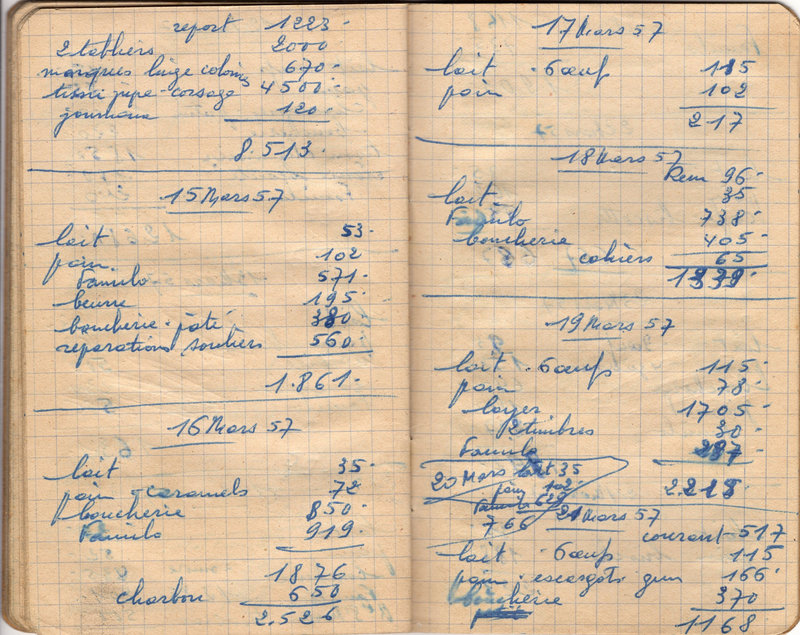 report 1223-
2 tabliers 2000
marques linge colonies 670-
tissu jupe-corsage 4500
journaux 120-
8.513.
15 Mars 57
lait 53-
pain 102
Familo 571-
beurre 195-
boucherie-pâté 380
reparations souliers 560-
1.861-
16 Mars 57
lait 35-
pain-caramels 72
boucherie 850-
Familo 919-
1876
charbon 650
2.526
17 Mars 57
lait - 6 œufs 115
pain 102
217
18 Mars 57
96-
lait 35
Familo 738-
boucherie 405-
cahiers 65
1339-
19 Mars 57
lait - 6 œufs 115-
pain 78-
loyer 1705-
2 timbres 30-
Familo 287-
2.215-
20 Mars lait 35
pain 102-
Familo 629
766
21 Mars 57
courant-517
lait - 6 œufs 115
pain-escargots 166-
boucherie 370
1168